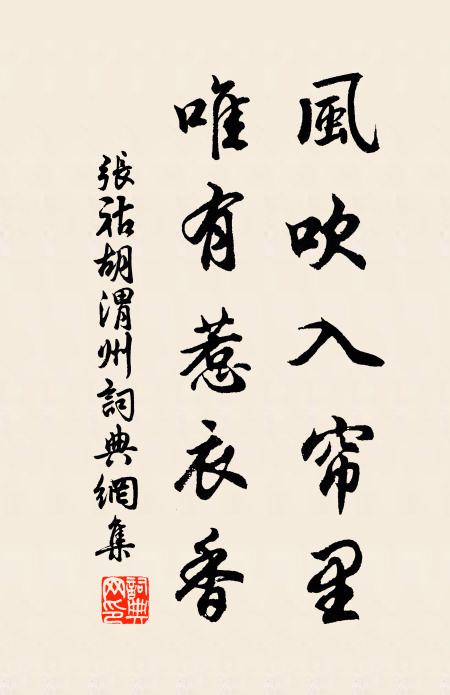 風吹入帘里
唯有惹衣香
張祜胡渭州詞典網集
詞典网印